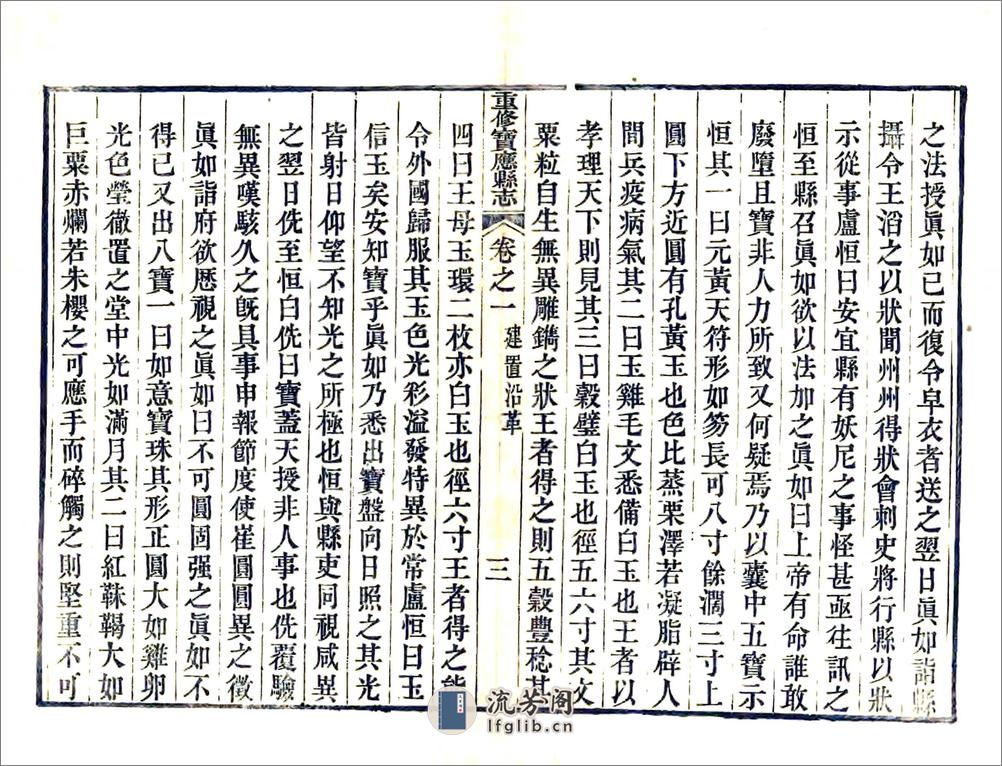 之法授眞如已而復令皁衣者送之翌日眞如詣縣
攝令王滔之以狀聞州州得狀會刺史將行縣以狀
示從事盧恒曰安宜縣有妖尼之事怪甚亟往訊之
恒至縣召眞如欲以法加之眞如曰上帝有命誰敢
廢墮且寶非人力所致又何疑焉乃以囊中五寶示
恒其一曰元黃天符形如笏長可八寸餘濶三寸上
圓下方近圓有孔黃玉也色比蒸栗澤若凝脂辟人
間兵疫病氣其二曰玉雞毛文悉備白玉也王者以
孝理天下則見其三曰穀璧白玉也徑五六寸其文
粟粒自生無異雕鐫之狀王者得之則五穀豐稔其
重修寶應縣志 卷之一 建置沿革 三
四曰王母玉環二枚亦白玉也徑六寸王者得之能
令外國歸服其玉色光彩溢發特異於常盧恒曰玉
信玉矣安知寶乎眞如乃悉出寶盤向日照之其光
皆射日仰望不知光之所極也恒與縣吏同視咸異
之翌日侁至恒白侁曰寶蓋天授非人事也侁覆驗
無異嘆駭久之旣具事申報節度使崔圓圓異之徵
眞如詣府欲歷視之眞如曰不可圓固强之眞如不
得已又出八寶一曰如意寶珠其形正圓大如雞卵
光色瑩徹置之堂中光如滿月其二曰紅靺鞨大如
巨粟赤爛若朱櫻之可應手而碎觸之則堅重不可
流芳阁
lfglib.cn